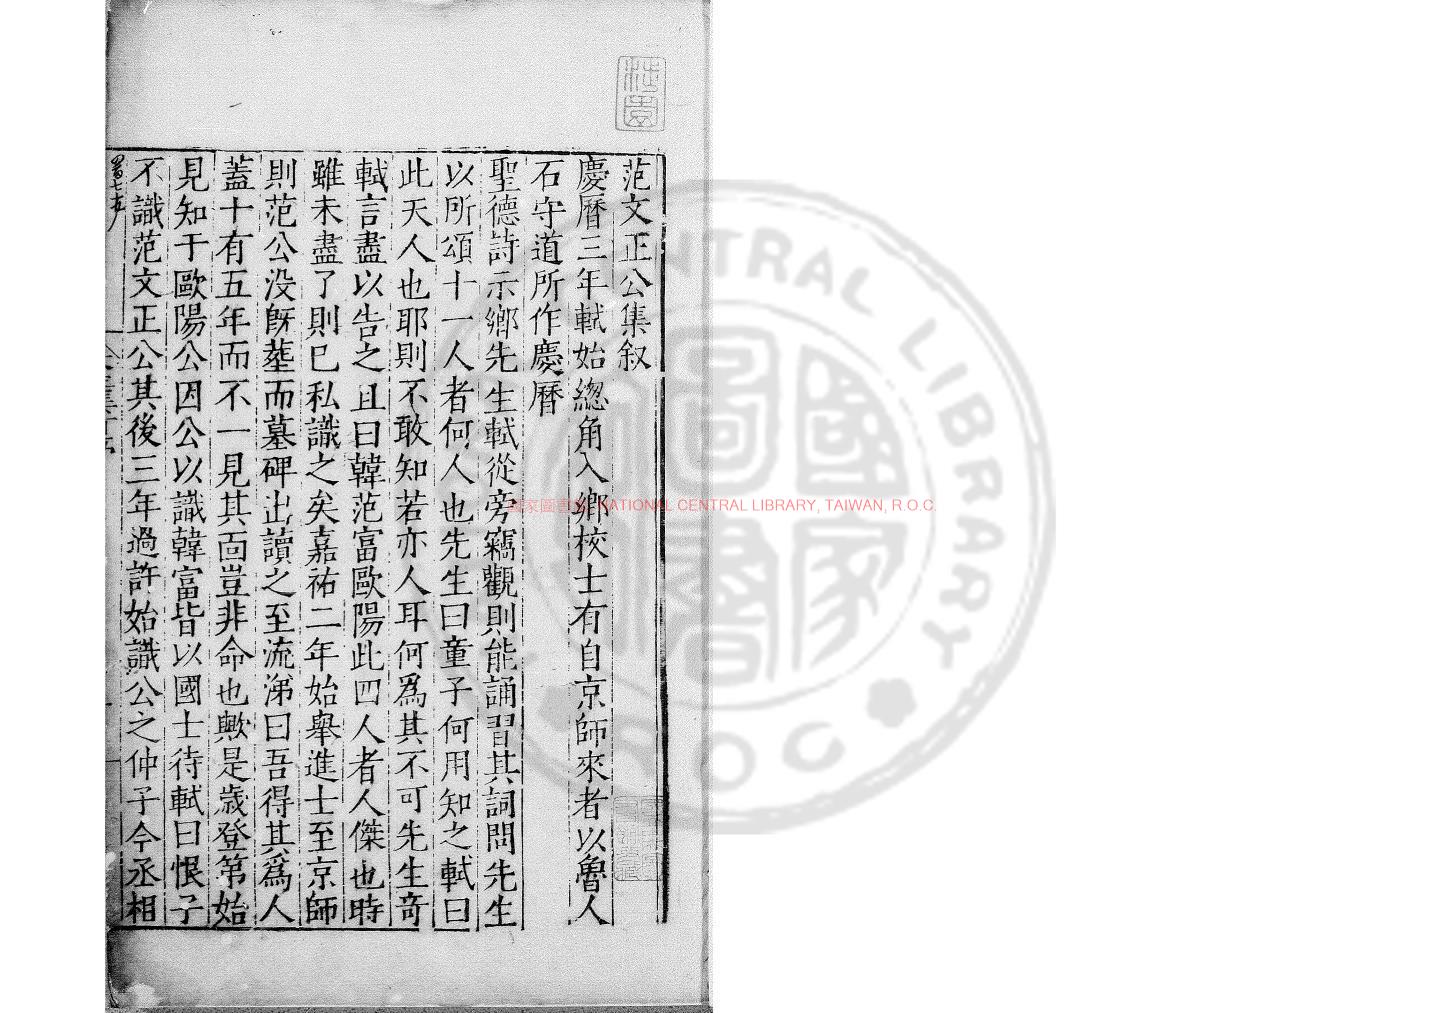 范文正公集叙
慶曆三年軾始緫角入鄉校士有自京師來者以魯人
石守道所作慶曆
聖德詩示鄉先生軾從旁竊觀則能誦習其詞問先生
以所頌十一人者何人也先生曰童子何用知之軾曰
此天人也耶則不敢知若亦人耳何爲其不可先生奇
軾言盡以告之且曰韓范富歐陽此四人者人傑也時
雖未盡了則已私識之矣嘉祐二年始舉進士至京師
則范公没旣塟而墓碑出讀之至流涕曰吾得其爲人
蓋十有五年而不一見其面豈非命也歟是歲登第始
見知于歐陽公因公以識韓富皆以國士待軾曰恨子
不識范文正公其後三年過許始識公之仲子今丞相
國家圖書館 NATIONAL CENTRAL LIBRARY, TAIWAN, R.O.C.
CENTRAL LIBRARY
ROC